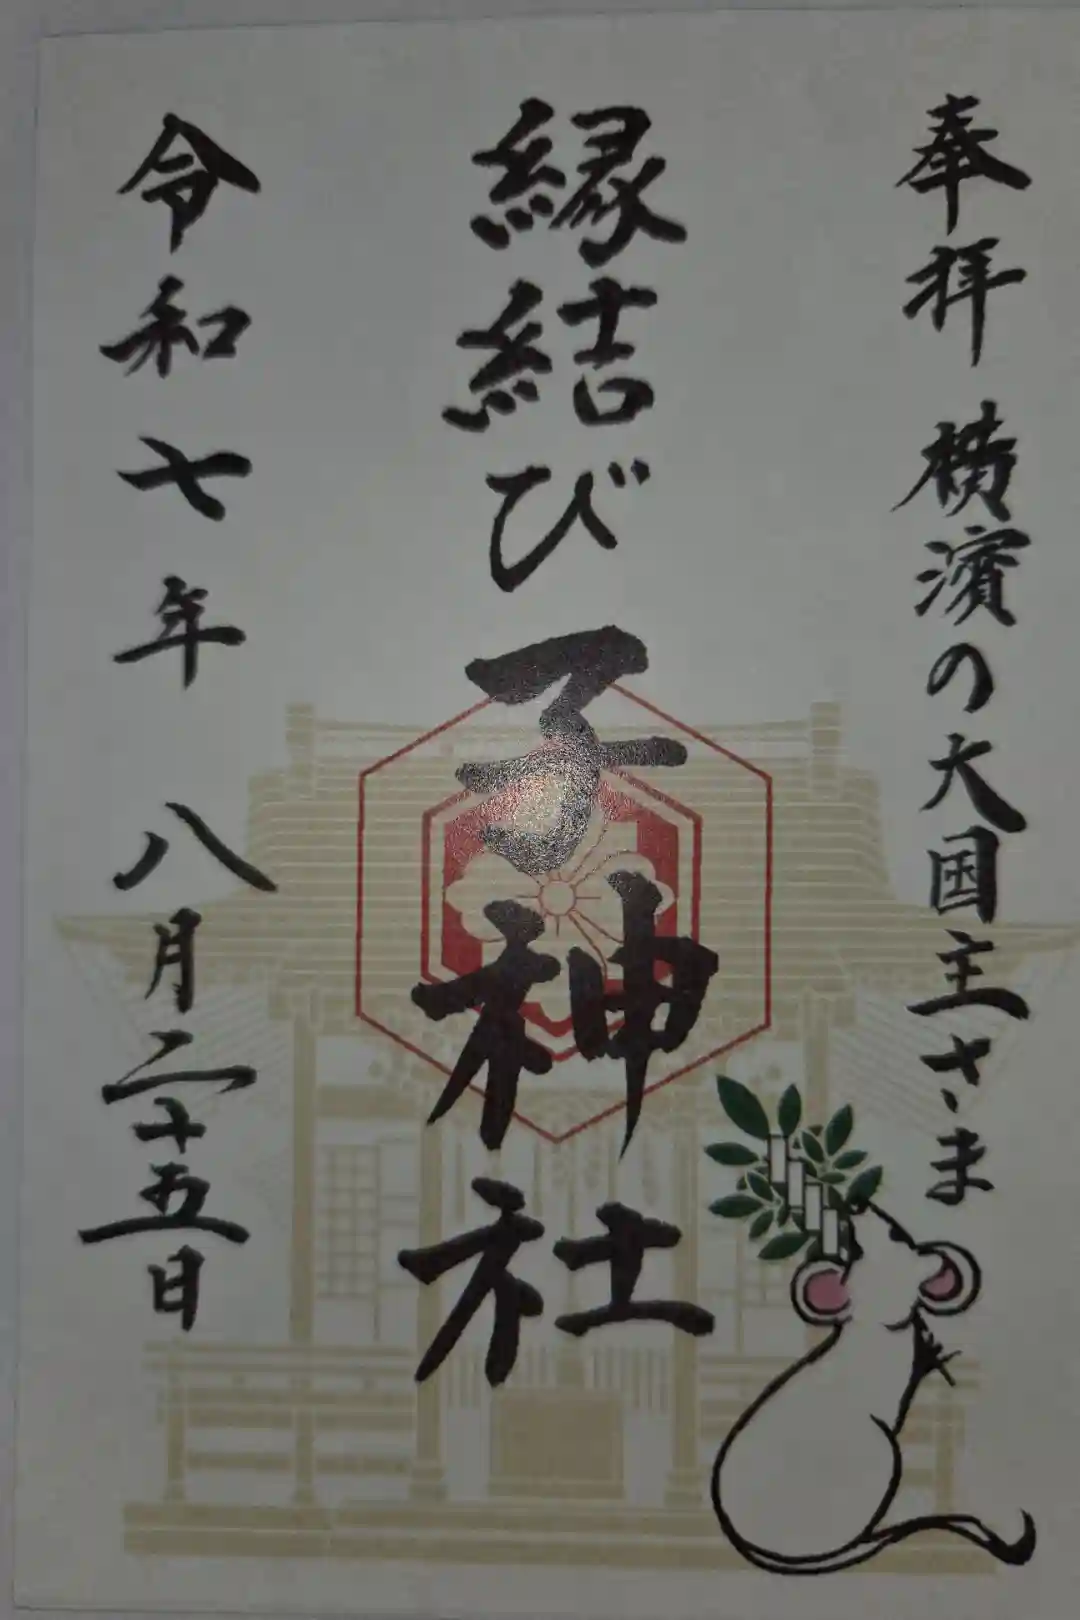 奉拝 横濱の大国主さゝま
縁結び 子神社
令和七年 八月二十五日